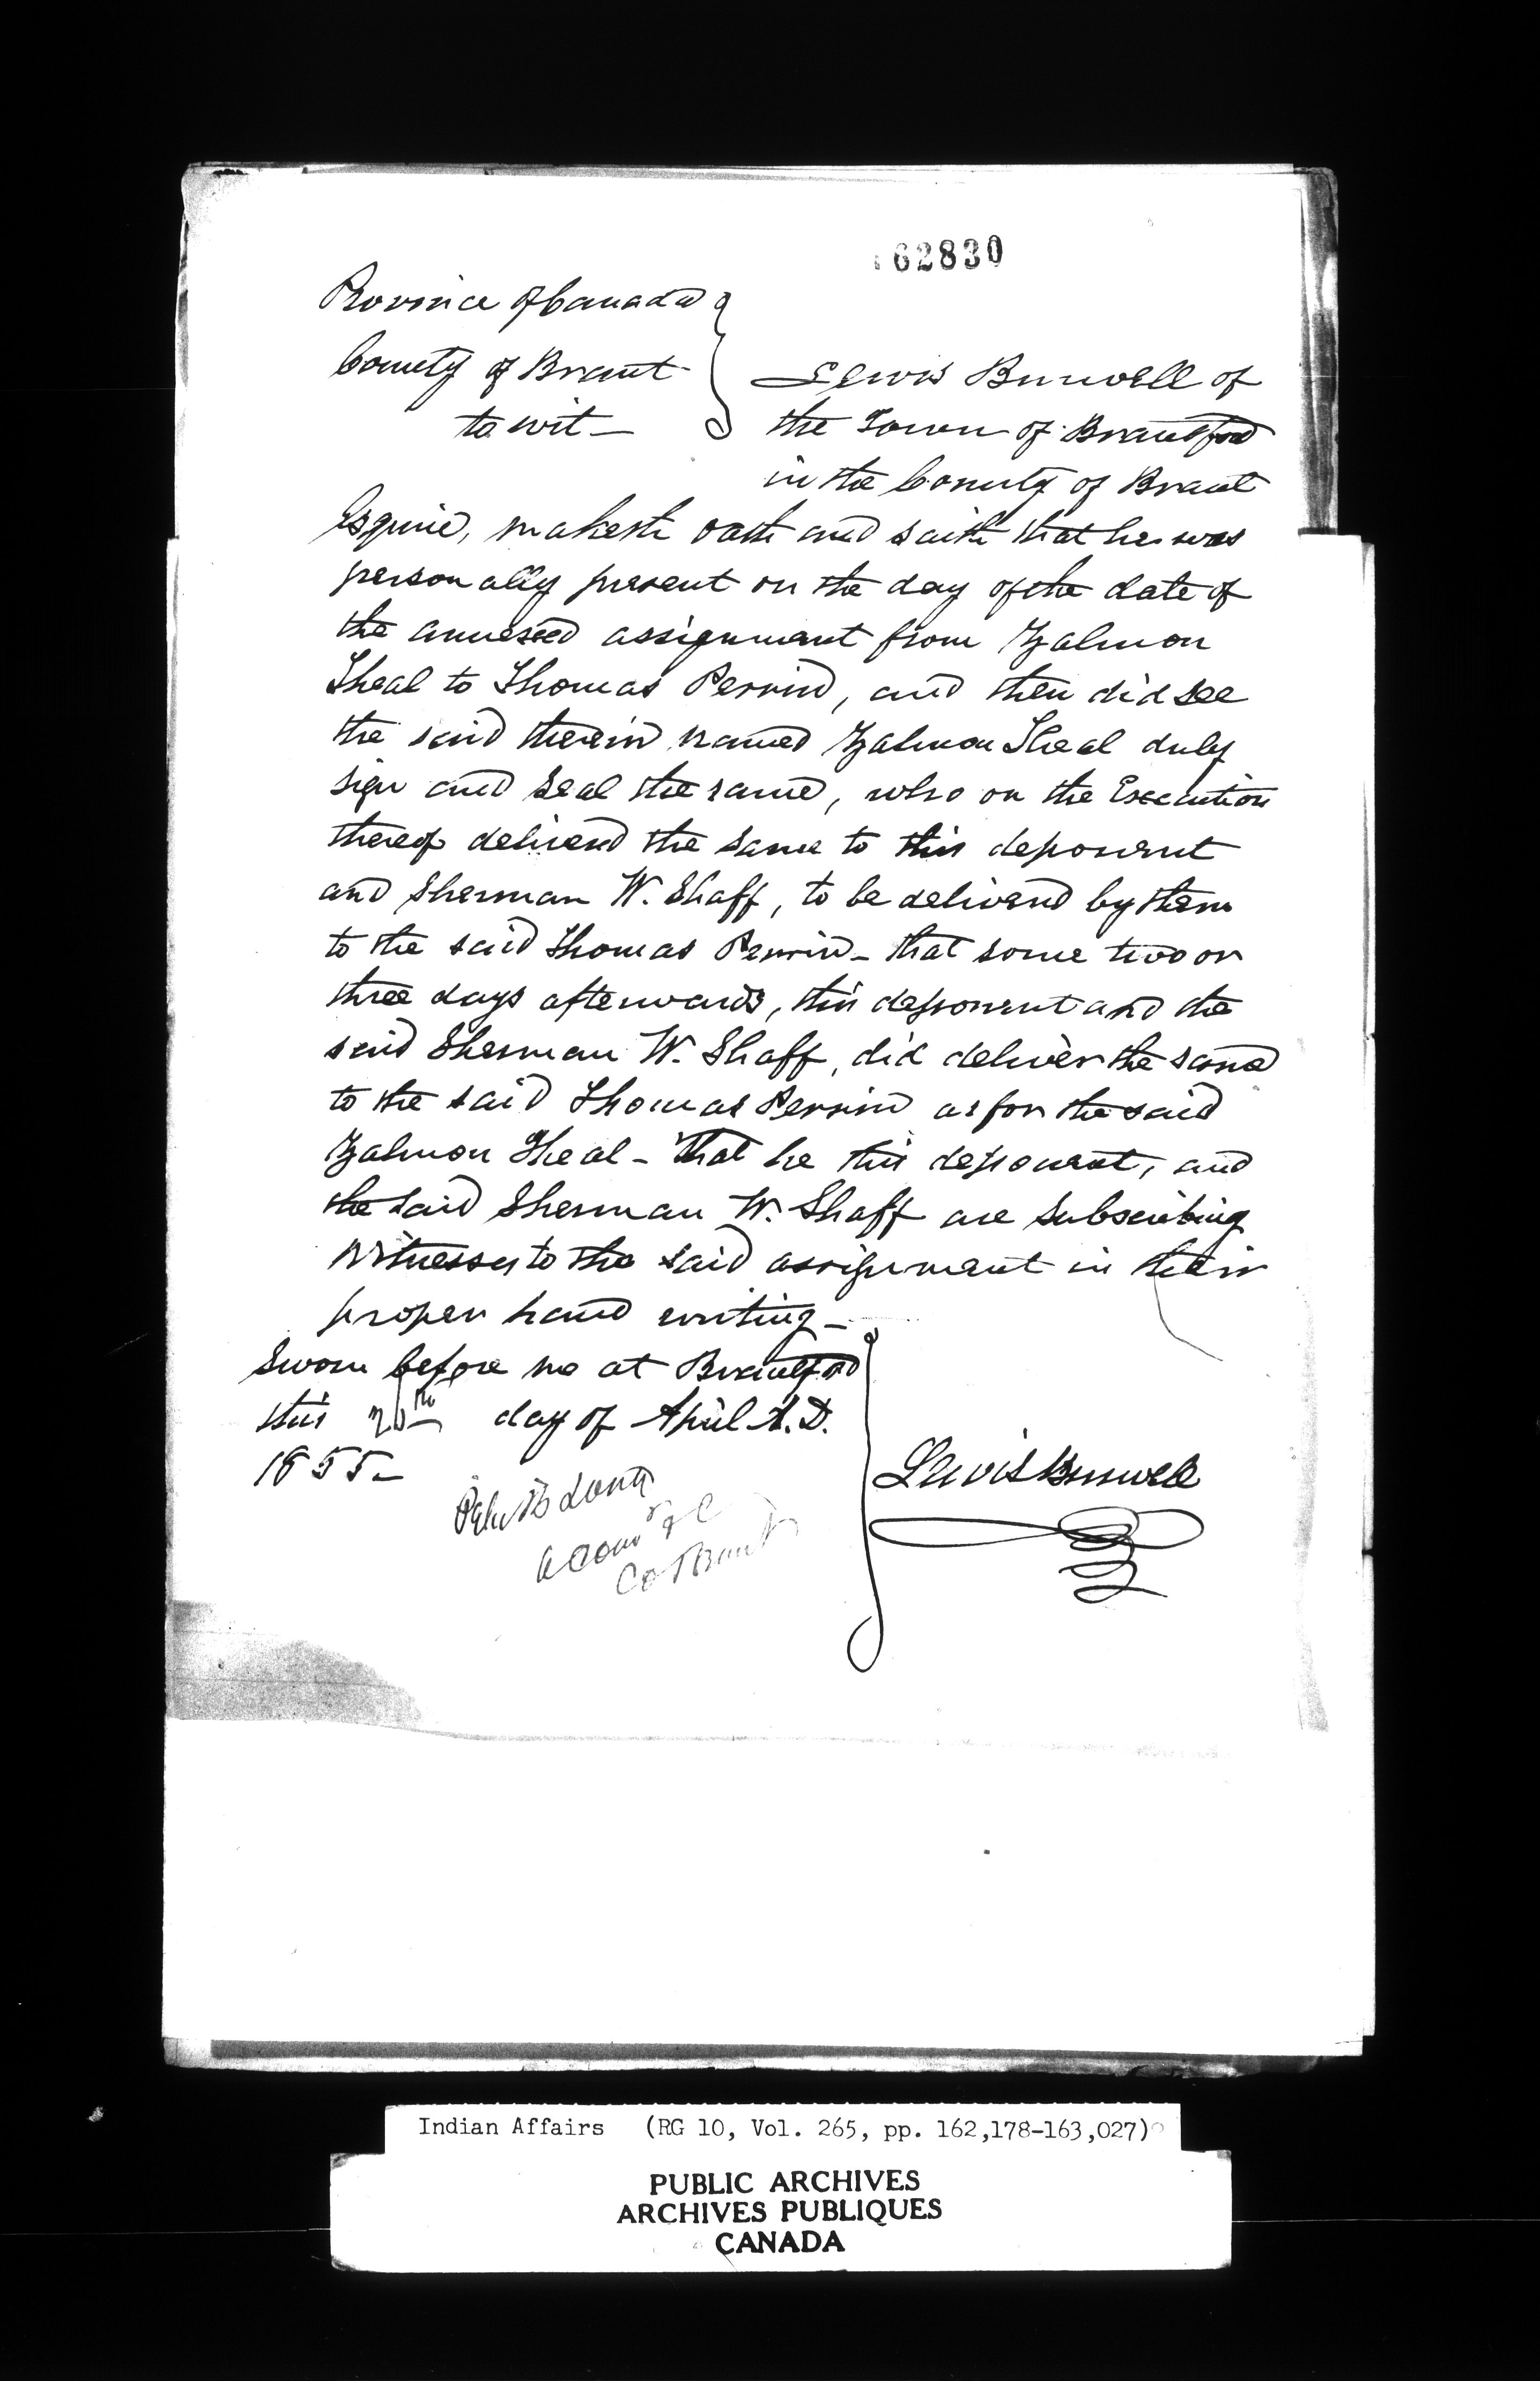 162830
Province of Canada
County of Brant
to wit -
Lewis Burwell of
the Town of Brantford
in the County of Brant
Esquire, maketh oath and saith that he was
personally present on the day of the date of
the annexed assignment from Zalmon
Theal to Thomas Perrin, and then did see
the said therein named Zalmon Theal duly
sign and seal the same, who on the Execution
thereof delivered the same to this deponent
and Sherman W. Shaff, to be delivered by them
to the said Thomas Perrin - that some two or
three days afterwards, this deponent and the
said Sherman W. Shaff, did deliver the same
to the said Thomas Perrin as for the said
Zalmon Theal - That he this deponent, and
the said Sherman W. Shaff are subscribing
witnesses to the said assignment in their
proper hand writing -
Sworn before me at Brantford
this day of April A.D.
1855 -
Lewis Burwell
Co Brant
Indian Affairs (RG 10, Vol. 265, pp. 162,178-163,027)
PUBLIC ARCHIVES
ARCHIVES PUBLIQUES
CANADA